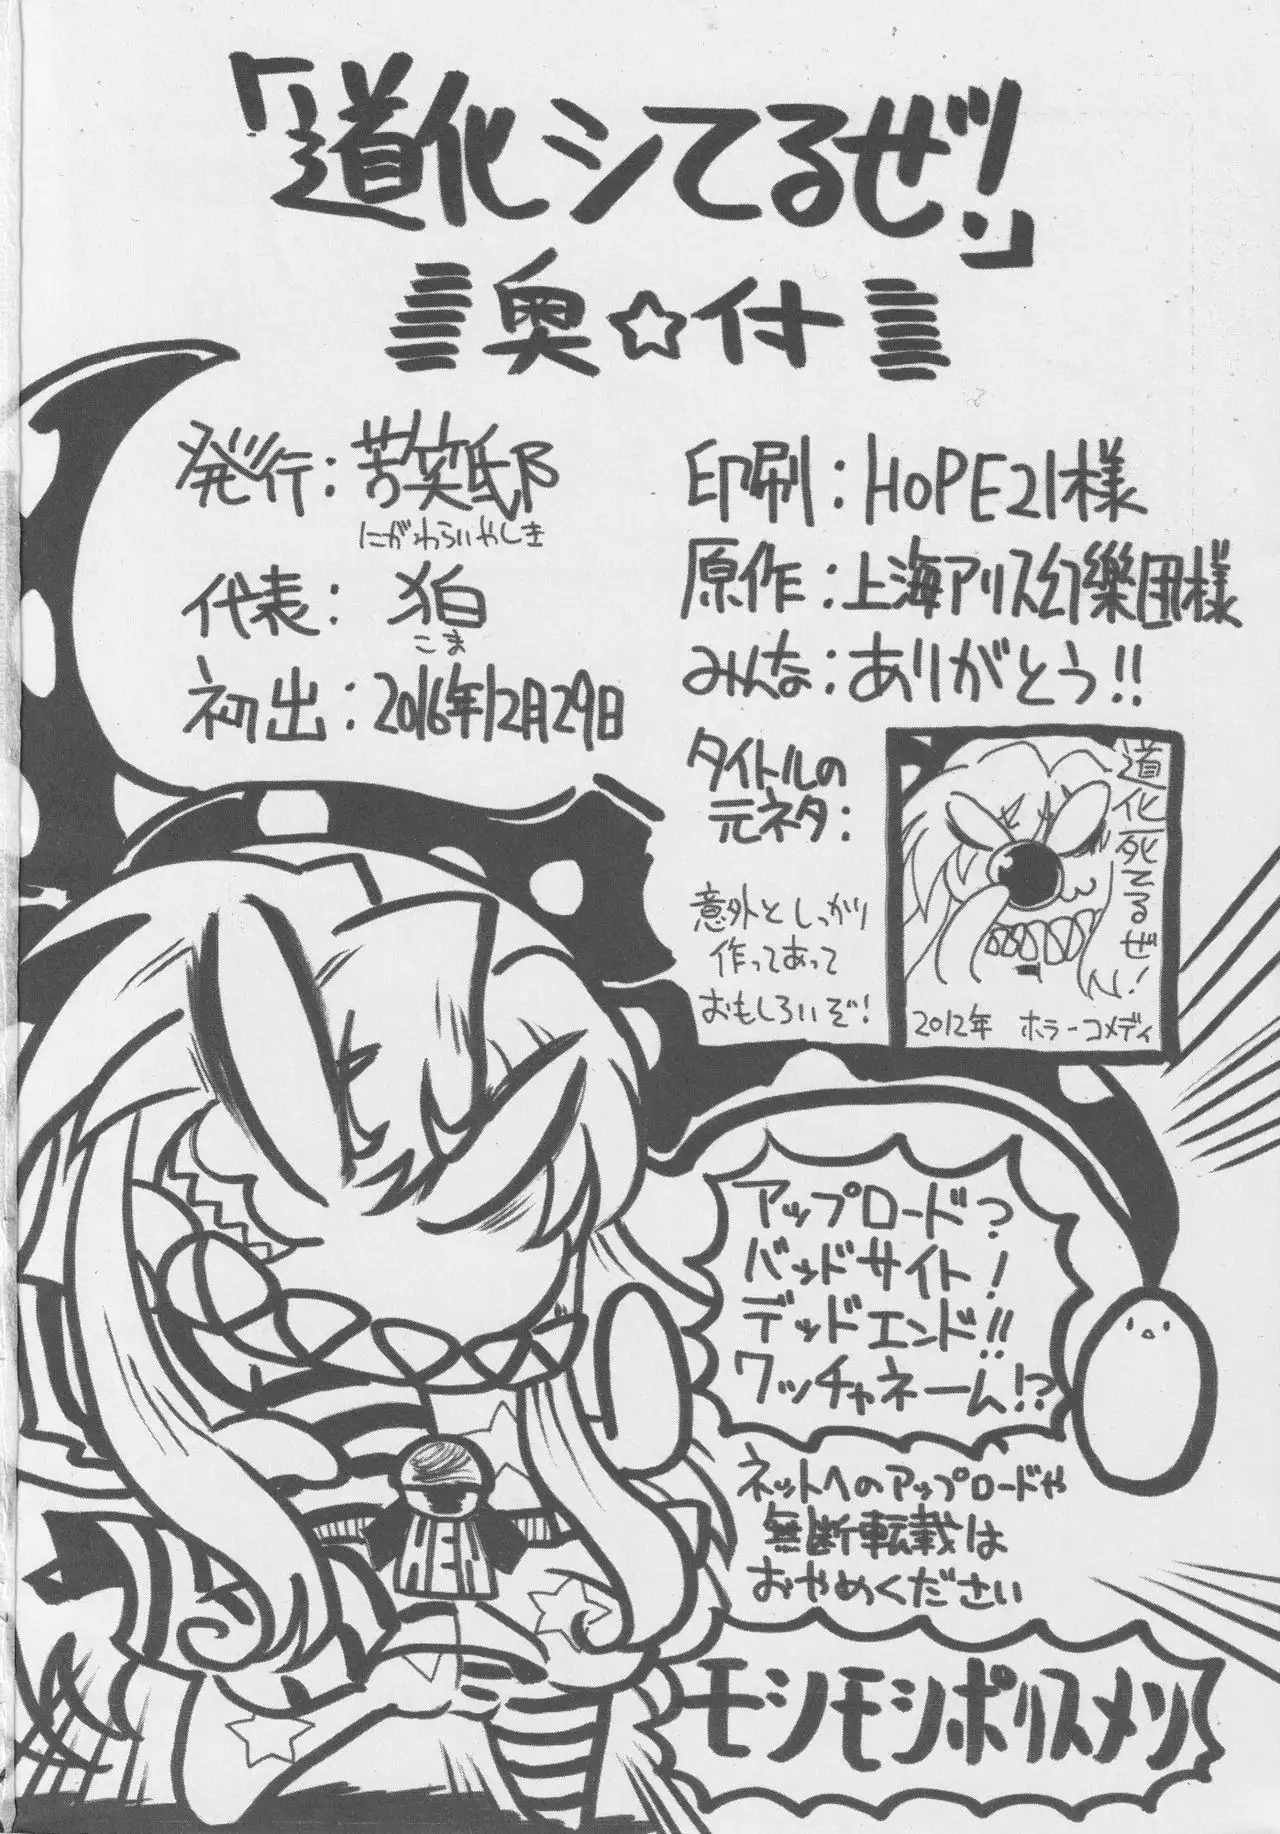 「道化シてるぜ!!」
奥☆付
発行:苦笑邸
にがわらいやしき
代表:狛
こま
初出:2016年12月29日
印刷:HOPE21様
原作:上海アリス幻樂団様
みんな:ありがとう!!
タイトルの
元ネタ:
意外としっかり
作ってあって
おもしろいぞ!
道化死てるぜ!
2012年 ホラーコメディ
アップロード?
バッドサイト!
デッドエンド!!
ワッチャネーム!?
ネットへのアップロードや
無断転載は
おやめください
モシモシポリスメン